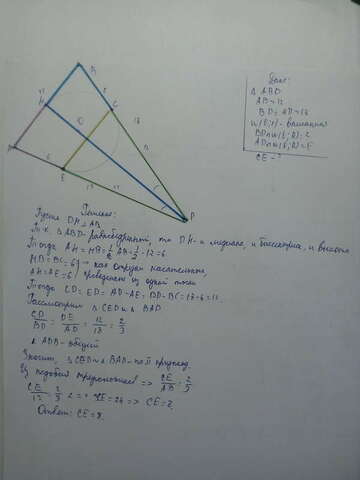 Дано:
△ ABD
AB=12
BD = AD=18
w(O;r) - вписанная
BD∩w(O;r)=C
AD∩w(O;r)=E
CE - ?
B
6
H
C
18
O
12
A
6
E
12
D
Решение:
Пусть DH⊥AB.
Т.к. △ABD-равнобедренный, то DH- и медиана, и биссектриса, и высота
Тогда AH=HB=1/2 AB=1/2·12=6
HB=BC=6 - как отрезки касательных,
AH=AE=6 проведен из одной точки
Тогда CD=ED=AD-AE=BD-BC=18-6=12.
Рассмотрим △CED и △BAD
CD/BD = DE/AD = 12/18 = 2/3
∠ADB-общий
Значит, △CED∽△BAD-по II признаку.
Из подобия треугольников => CE/AB=2/3
CE/12=2/3 <=> 3CE=24 => CE=8.
Ответ: CE=8.